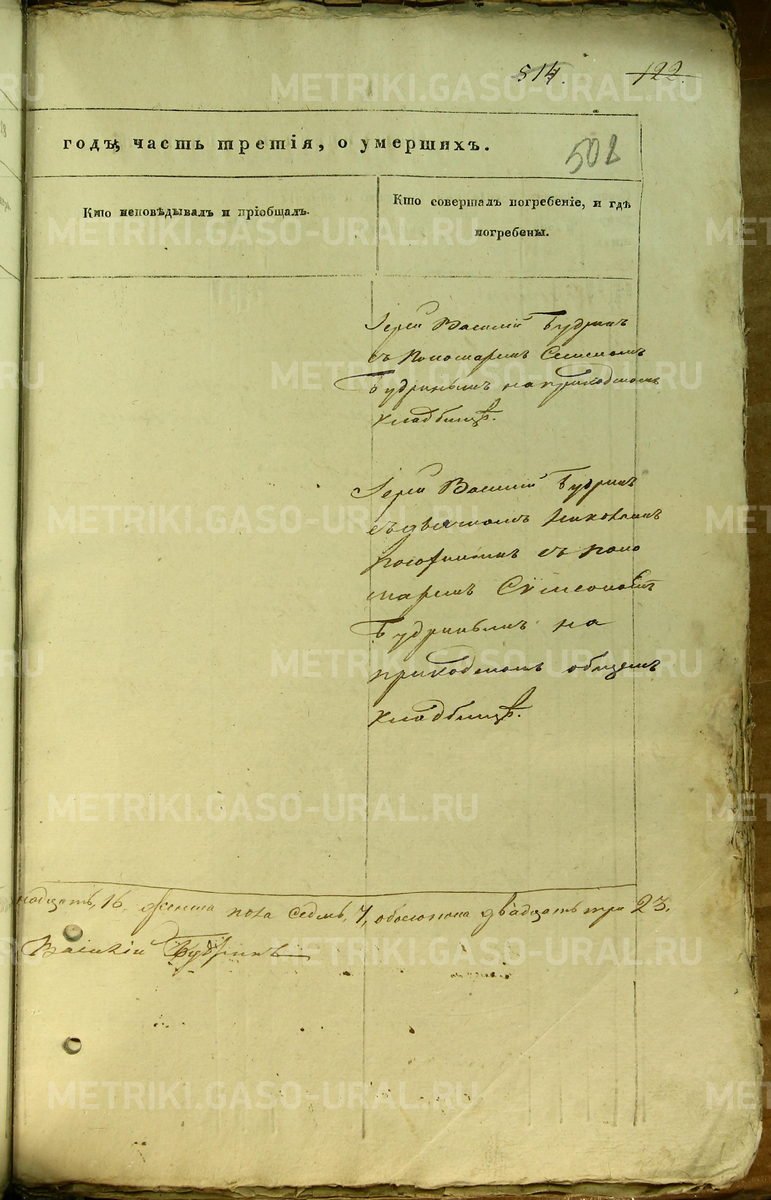 514. 122.
годъ, часть третія, о умершихъ.
502
Кто исповѣдывалъ и пріобщалъ.
Кто совершалъ погребеніе, и гдѣ
погребены.
Іерей Василій Будринъ
съ Пономаремъ
Будринымъ на приходскомъ
кладбищѣ.
Іерей Василій Будринъ
съ дьячкомъ
съ поно
маремъ
Будринымъ на
приходскомъ общемъ
кладбищѣ.
надцать, 16. женска пола седмь, 7, обоего пола двадцать три 23.
Василій Будринъ
METRIKI.GASO-URAL.RU